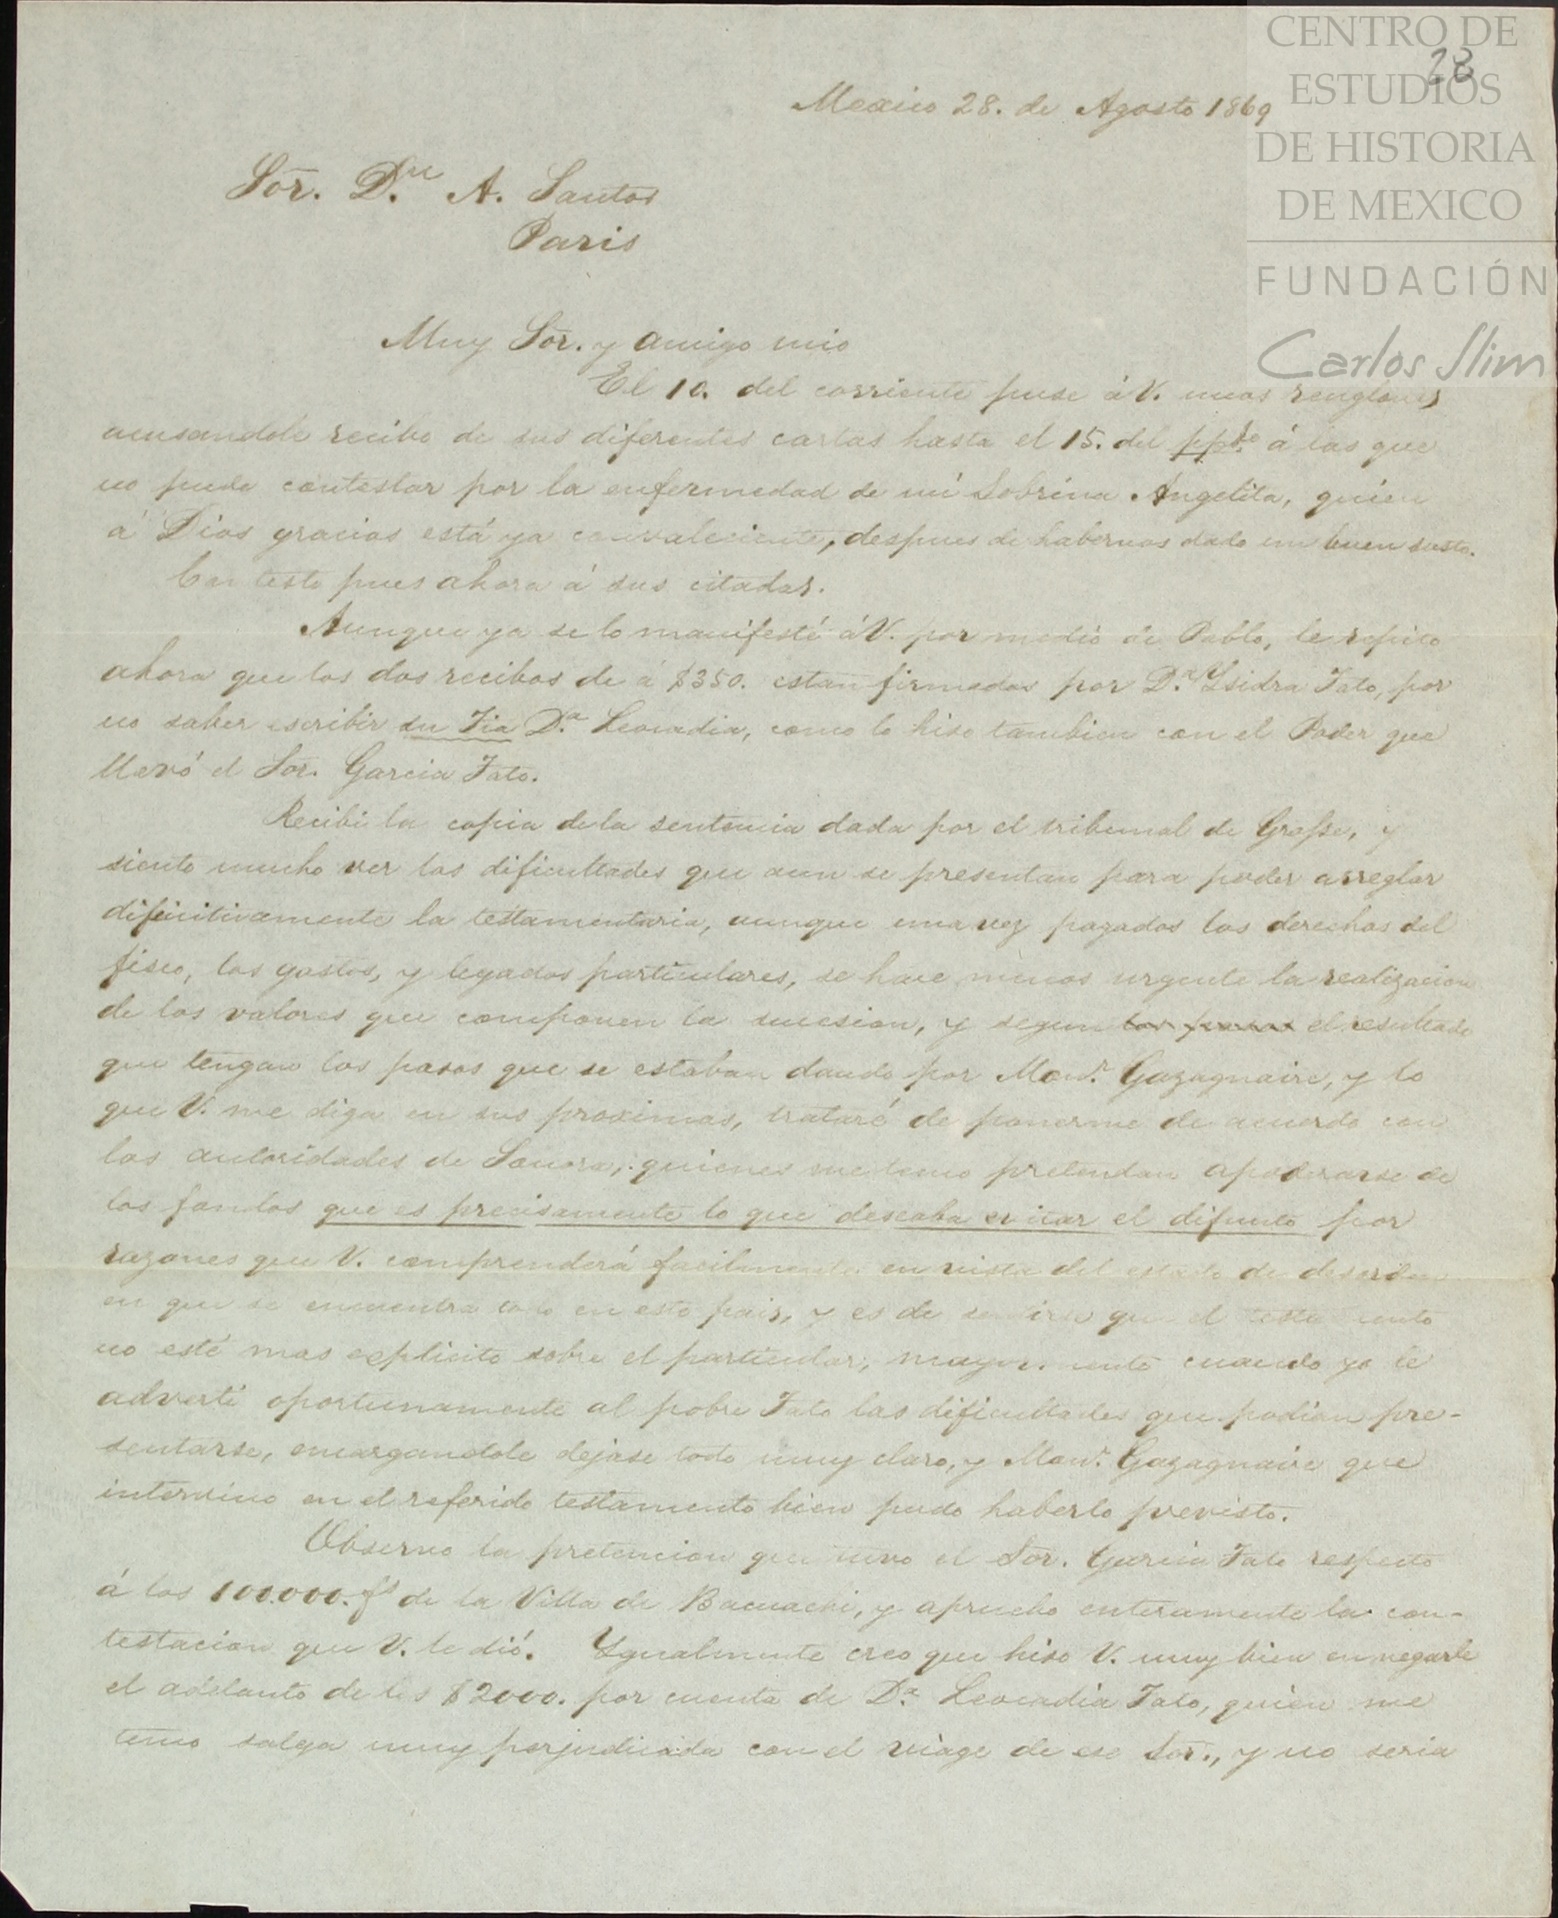 CENTRO DE
ESTUDIOS
DE HISTORIA
DE MEXICO
FUNDACIÓN
Carlos Slim
28
Mexico 28. de Agosto 1869
Sor. D.n A. Santos
Paris
Muy Sor. y amigo mio
El 10. del corriente puse á V. unos renglones
acusandole recibo de sus diferentes cartas hasta el 15. del ppdo á las que
no pude contestar por la enfermedad de mi Sobrina Angelita, quien
á Dios gracias está ya convaleciente, despues de habernos dado un buen susto.
Contesto pues ahora á sus citadas.
Aunque ya se lo manifesté á V. por medio de Pablo, le repito
ahora que los dos recibos de á $350. estan firmados por D.a Ysidra Tato, por
no saber escribir su Tia D.a Leocadia, como lo hiso tambien con el Poder que
llevó el Sor. Garcia Tato.
Recibi la copia de la sentencia dada por el tribunal de Grasse, y
siento mucho ver las dificultades que aun se presentan para poder arreglar
difinitivamente la testamentaria, aunque una vez pagados los derechos del
fisco, los gastos, y legados particulares, se hace menos urgente la realizacion
de los valores que componen la sucesion, y segun los pasos el resultado
que tengan los pasos que se estaban dando por Monr. Gazagnaire, y lo
que V. me diga en sus proximas, trataré de ponerme de acuerdo con
las autoridades de Sonora, quienes me temo pretendan apoderarse de
los fondos que es precisamente lo que deseaba evitar el difunto por
razones que V. comprenderá facilmente en vista del estado de desorden
en que se encuentra todo en este pais, y es de sentirse que el testamento
no esté mas esplicito sobre el particular, mayormente cuando yo le
adverti oportunamente al pobre Tato las dificultades que podian pre-
sentarse, encargandole dejase todo muy claro, y Monr. Gazagnaire que
intervino en el referido testamento bien pudo haberlo previsto.
Observo la pretencion que tuvo el Sor. Garcia Tato respecto
á los 100.000. fs de la Villa de Bacuachi, y apruebo enteramente la con-
testacion que V. le dió. Ygualmente creo que hiso V. muy bien en negarle
el adelanto de los $2000. por cuenta de D.a Leocadia Tato, quien me
temo salga muy perjudicada con el viage de ese Sor., y no seria